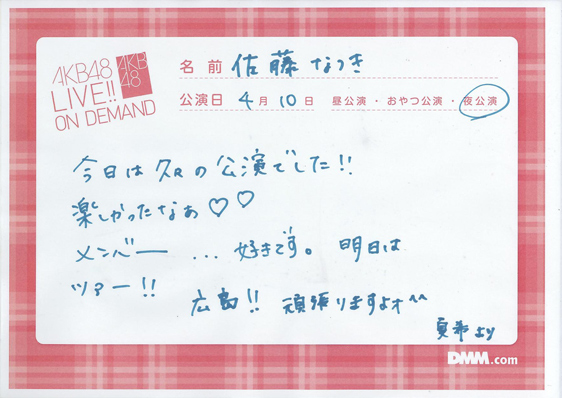 AKB48
LIVE!!
ON DEMAND
AKB
48
名前 佐藤なつき
公演日 4月10日 昼公演・おやつ公演・夜公演
今日は久々の公演でした!!
楽しかったなぁ♡♡
メンバー ... 好きです。 明日は
ツアー!!
広島!! 頑張りますよォ^^
夏希より
DMM.com